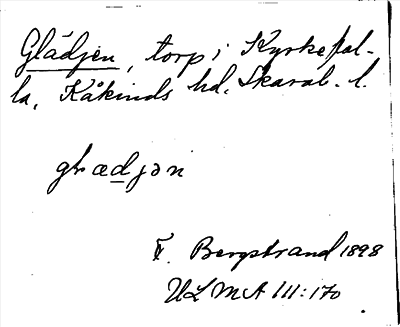 Glädjen, torp i Kyrkefal-
la, Kåkinds hd, Skarab. l.
glædjən
F. Bergstrand 1898
ULMA 111:170